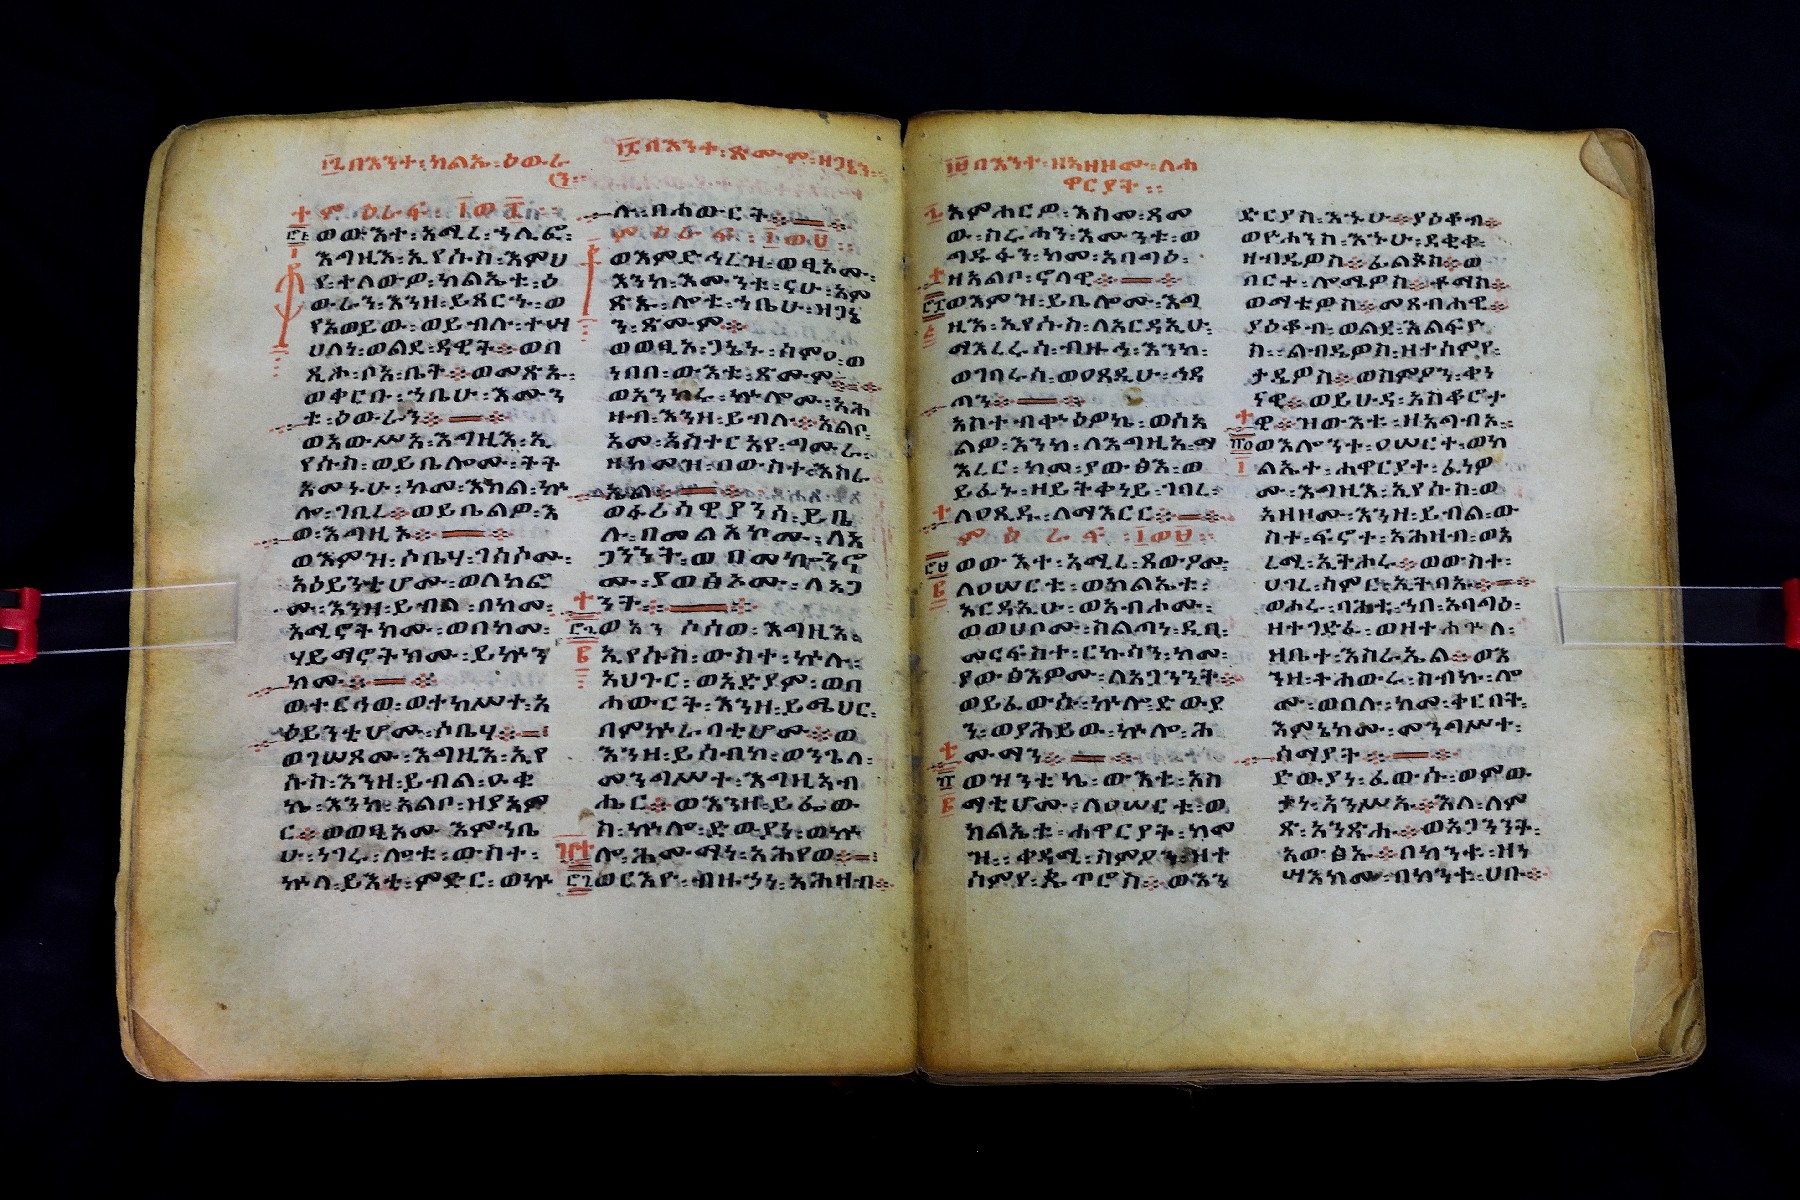 በእንተ፡ክልኤ፡ዕውራ
ን።
ምዕራፍ፡፲ወ፯፡
ወውእተ፡አሚረ፡ኀሊፎ፡
እግዚእ፡ኢየሱስ፡እምህ
የ፡ተለውዎ፡ክልኤቱ፡ዕ
ውራን፡እንዘ፡ይጸርኁ፡ወ
የአወይው፡ወይብሉ፡ተሣ
ሀለነ፡ወልደ፡ዳዊት፡ወበ
ጺሖ፡ቦአ፡ቤት፡ወመጽኡ፡
ወቀርቡ፡ኀቤሁ፡እሙን
ቱ፡ዕውራን፡
ወአውሥአ፡እግዚእ፡ኢ
የሱስ፡ወይቤሎሙ፡ትት
አመኑሁ፡ከመ፡እክል፡ኵ
ሎ፡ገቢረ፡ወይቤልዎ፡እ
ወ፡እግዚኦ፡
ወእምዝ፡ሶቤሃ፡ገሰሶሙ፡
አዕይንቲሆሙ፡ወለከፎ
ሙ፡እንዘ፡ይብል፡በከመ፡
አሚኖትክሙ፡ወበከመ፡
ሃይማኖትክሙ፡ይኵን
ክሙ፡
ወተርኅወ፡ወተከሥተ፡አ
ዕይንቲሆሙ፡ሶቤሃ፡
ወገሠጾሙ፡እግዚእ፡ኢየ
ሱስ፡እንዘ፡ይብል፡ዑቁ
ኬ፡እንከ፡አልቦ፡ዘያአም
ር፡ወወፂኦሙ፡እምኀቤ
ሁ፡ነገረ፡ሎቱ፡ውስተ፡
ኵላ፡ይእቲ፡ምድር፡ወኵ
በእንተ፡ጽሙም፡ዘጋኔን፡
ሉ፡በሐውርት፡
ምዕራፍ፡፲ወ፰፡
ወእምድኅረዝ፡ወፂኦሙ፡
እንከ፡እሙንቱ፡ናሁ፡አም
ጽኡ፡ሎቱ፡ኀቤሁ፡ዘጋኔ
ን፡ጽሙም፡
ወወፂአ፡ጋኔኑ፡ሰምዐ፡ወ
ነበበ፡ውእቱ፡ጽሙም፡
ወአንከሩ፡ኵሎሙ፡አሕ
ዛብ፡እንዘ፡ይብሉ፡አልቦ፡
አመ፡አስተርአየ፡ግሙራ፡
ዘከመዝ፡በውስተ፡እስራ
ኤል፡
ወፈሪሳዊያንሰ፡ይቤ
ሉ፡በመልአኮሙ፡ለአ
ጋንንት፡ወበመኰንኖ
ሙ፡ያወፅኦሙ፡ለአጋ
ንት፡
ወአንሶሰወ፡እግዚእ
ኢየሱስ፡ውስተ፡ኵሉ፡
አህጉር፡ወአድያም፡ወበ
ሐውርት፡እንዘ፡ይሜህር፡
በምኵራባቲሆሙ፡ወ
እንዘ፡ይሰብክ፡ወንጌለ፡
መንግሥተ፡እግዚአብ
ሔር፡ወእንዘ፡ይፌው
ስ፡ኵሎ፡ድውያነ፡ወኵ
ሎ፡ሕሙማነ፡አሕየወ፡
ወርእዮ፡ብዙኃነ፡አሕዛበ፡
በእንተ፡ዘአዘዞሙ፡ለሐ
ዋርያት።
አምሐርዎ፡እስመ፡ጻመ
ው፡ስራሓን፡እሙንቱ፡ወ
ግዱፋን፡ከመ፡አባግዕ፡
ዘአልቦ፡ኖላዊ፡
ወእምዝ፡ይቤሎሙ፡እግ
ዚእ፡ኢየሱስ፡ለአርዳኢሁ፡
ማእረሩሰ፡ብዙኅ፡እንከ፡
ወገባሩሰ፡ወዐጸዲሁ፡ኅዳ
ጣን፡
አስተብቀዕዎኬ፡ወሰአ
ልዎ፡እንከ፡ለእግዚአ፡ማ
እረር፡ከመ፡ያውፅእ፡ወ
ይፈኑ፡ዘይትቀነይ፡ገባረ፡
ለዐጺዱ፡ለማእርር፡
ምዕራፍ፡፲ወ፱፡
ወውእተ፡አሚረ፡ጸውዖሙ፡
ለዐሠርቱ፡ወክልኤቱ፡
አርዳኢሁ፡ወአብሖሙ፡
ወወሀቦሙ፡ስልጣነ፡ዲበ፡
መናፍስተ፡ርኩሳን፡ከመ፡
ያውፅእዎሙ፡ለአጋንንት፡
ወይፈውሱ፡ኵሎ፡ድውያ
ን፡ወያሕይው፡ኵሎ፡ሕ
ሙማን፡
ወዝንቱኬ፡ውእቱ፡አስ
ማቲሆሙ፡ለዐሠርቱ፡ወ
ክልኤቱ፡ሐዋርያት፡ከመ
ዝ፡ቀዳሚ፡ስምዖን፡ዘተ
ሰምየ፡ጴጥሮስ፡ወእን
ድርያስ፡እኁሁ፡ያዕቆብ፡
ወዮሐንስ፡እኁሁ፡ደቂቀ፡
ዘብዴዎስ፡ፊልጶስ፡ወ
በርተ፡ሎሜዎስ፡ቶማስ፡
ወማቴዎስ፡መጸብሓዊ፡
ያዕቆብ፡ወልደ፡እልፍዮ
ስ፡ልብዴዎስ፡ዘተሰምየ፡
ታዴዎስ፡ወስምዖን፡ቀነ
ናዊ፡ወይሁዳ፡አስቆሮታ
ዊ፡ዝውእቱ፡ዘአግብአ፡
ወእሎንተ፡ዐሠርተ፡ወክ
ልኤተ፡ሐዋርያተ፡ፈነዎ
ሙ፡እግዚእ፡ኢየሱስ፡ወ
አዘዞሙ፡እንዘ፡ይብል፡ው
ስተ፡ፍኖተ፡አሕዛብ፡ወአ
ረሚ፡ኢትሑሩ፡ወውስተ፡
ሀገረ፡ሳምር፡ኢትባኡ፡
ወሑሩ፡ባሕቱ፡ኀበ፡አባግዕ፡
ዘተገድፉ፡ወዘተሐጕለ፡
ዘቤተ፡እስራኤል፡ወእ
ንዘ፡ተሐውሩ፡ስብኩ፡ሎ
ሙ፡ወበሉ፡ከመ፡ቀርበት፡
እምኔክሙ፡መንግሥተ፡
ሰማያት፡
ድውያነ፡ፈውሱ፡ወምው
ታነ፡አንሥኡ፡እለ፡ለም
ጽ፡አንጽሑ፡ወአጋንንት፡
አውፅኡ፡በከንቱ፡ዘነ
ሣእክሙ፡በከንቱ፡ሀቡ፡